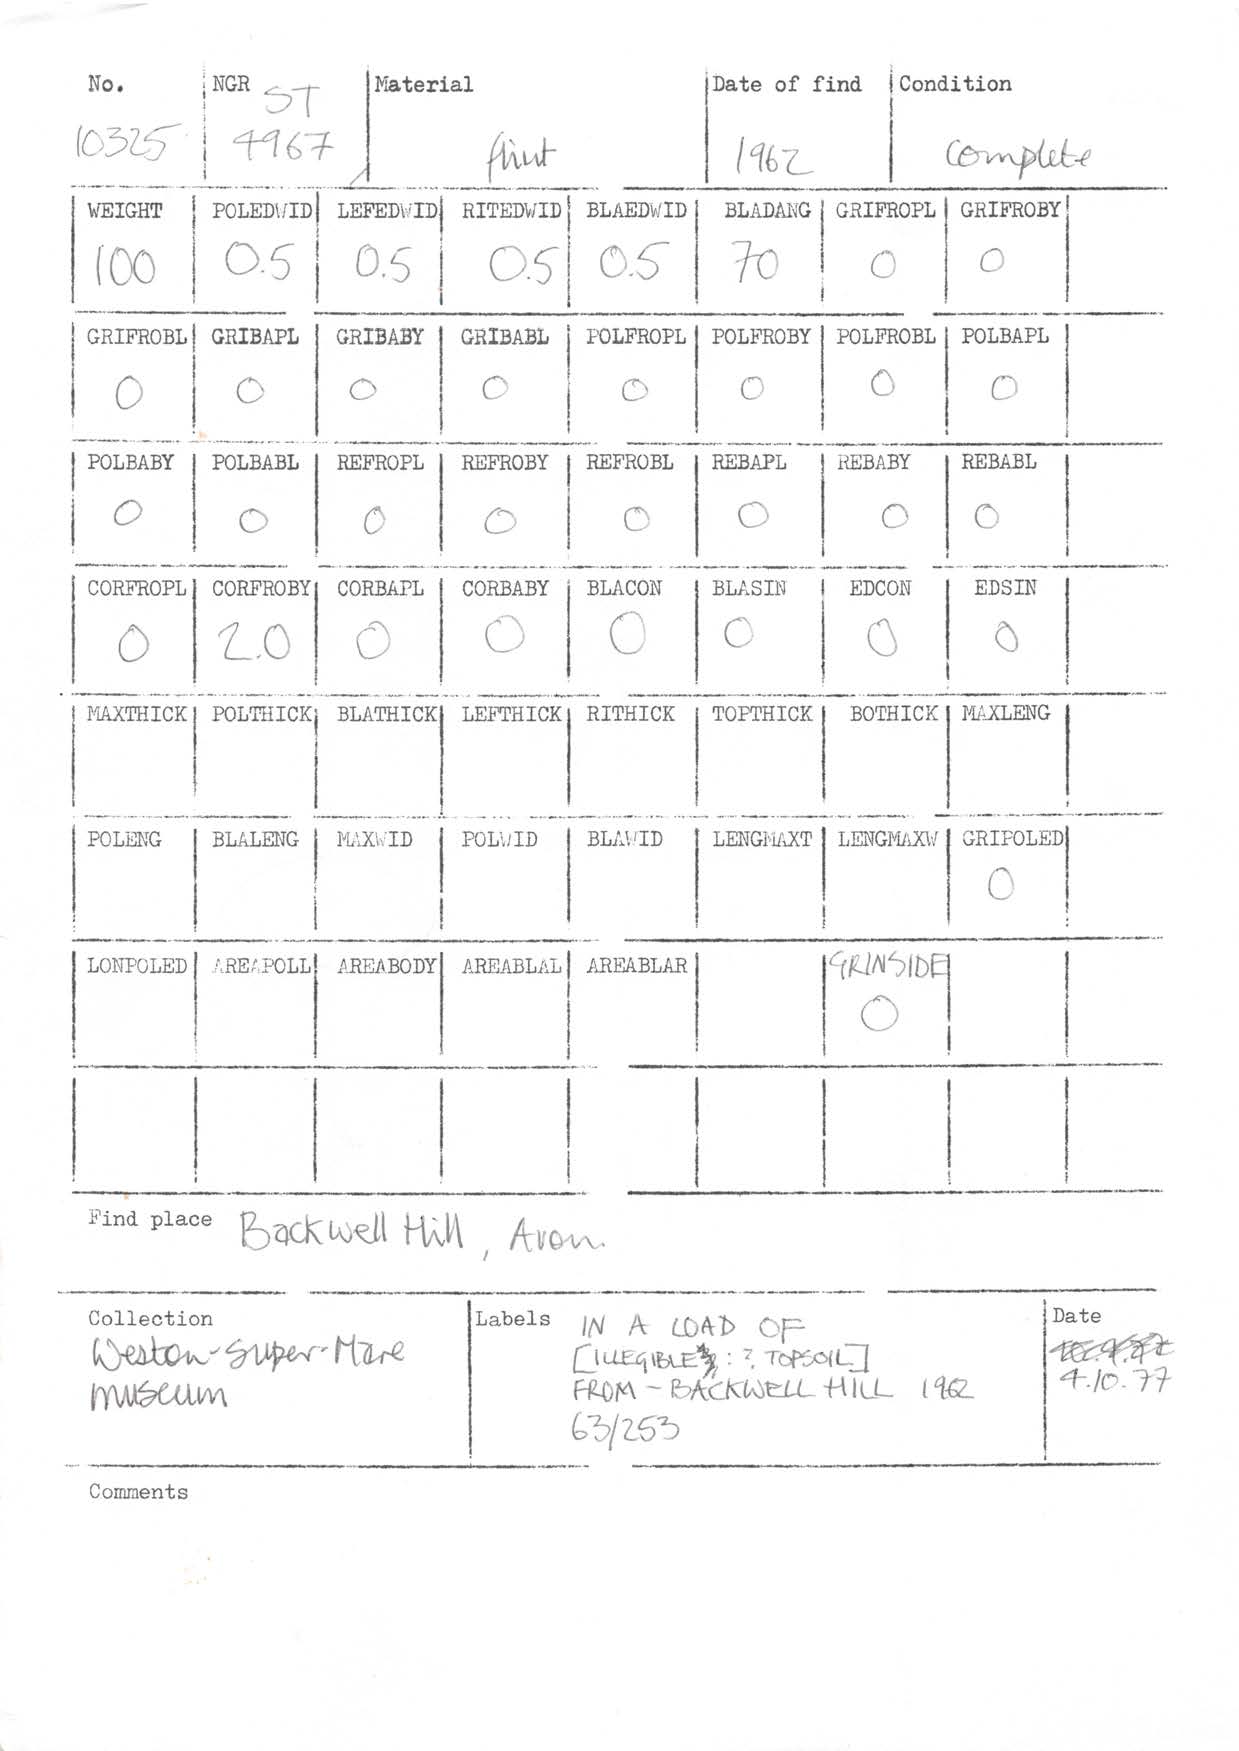 No. NGR Material Date of find Condition
ST
10325 4967 flint 1962 complete
WEIGHT POLEDWID LEFEDWID RITEDWID BLAEDWID BLADANG GRIFROPL GRIFROBY
100 0.5 0.5 0.5 0.5 70 0 0
GRIFROBL GRIBAPL GRIBABY GRIBABL POLFROPL POLFROBY POLFROBL POLBAPL
0 0 0 0 0 0 0 0
POLBABY POLBABL REFROPL REFROBY REFROBL REBAPL REBABY REBABL
0 0 0 0 0 0 0 0
CORFROPL CORFROBY CORBAPL CORBABY BLACON BLASIN EDCON EDSIN
0 2.0 0 0 0 0 0 0
MAXTHICK POLTHICK BLATHICK LEFTHICK RITHICK TOPTHICK BOTHICK MAXLENG
POLENG BLALENG MAXWID POLWID BLAWID LENGMAXT LENGMAXW GRIPOLED
0
LONPOLED AREAPOLL AREABODY AREABLAL AREABLAR GRINSIDE
0
Find place Backwell Hill, Avon.
Collection Labels Date
Weston-Super-Mare
museum
IN A LOAD OF
[ILLEGIBLE : ? TOPSOIL]
FROM - BACKWELL HILL 1962
63/253
4.10.77
Comments